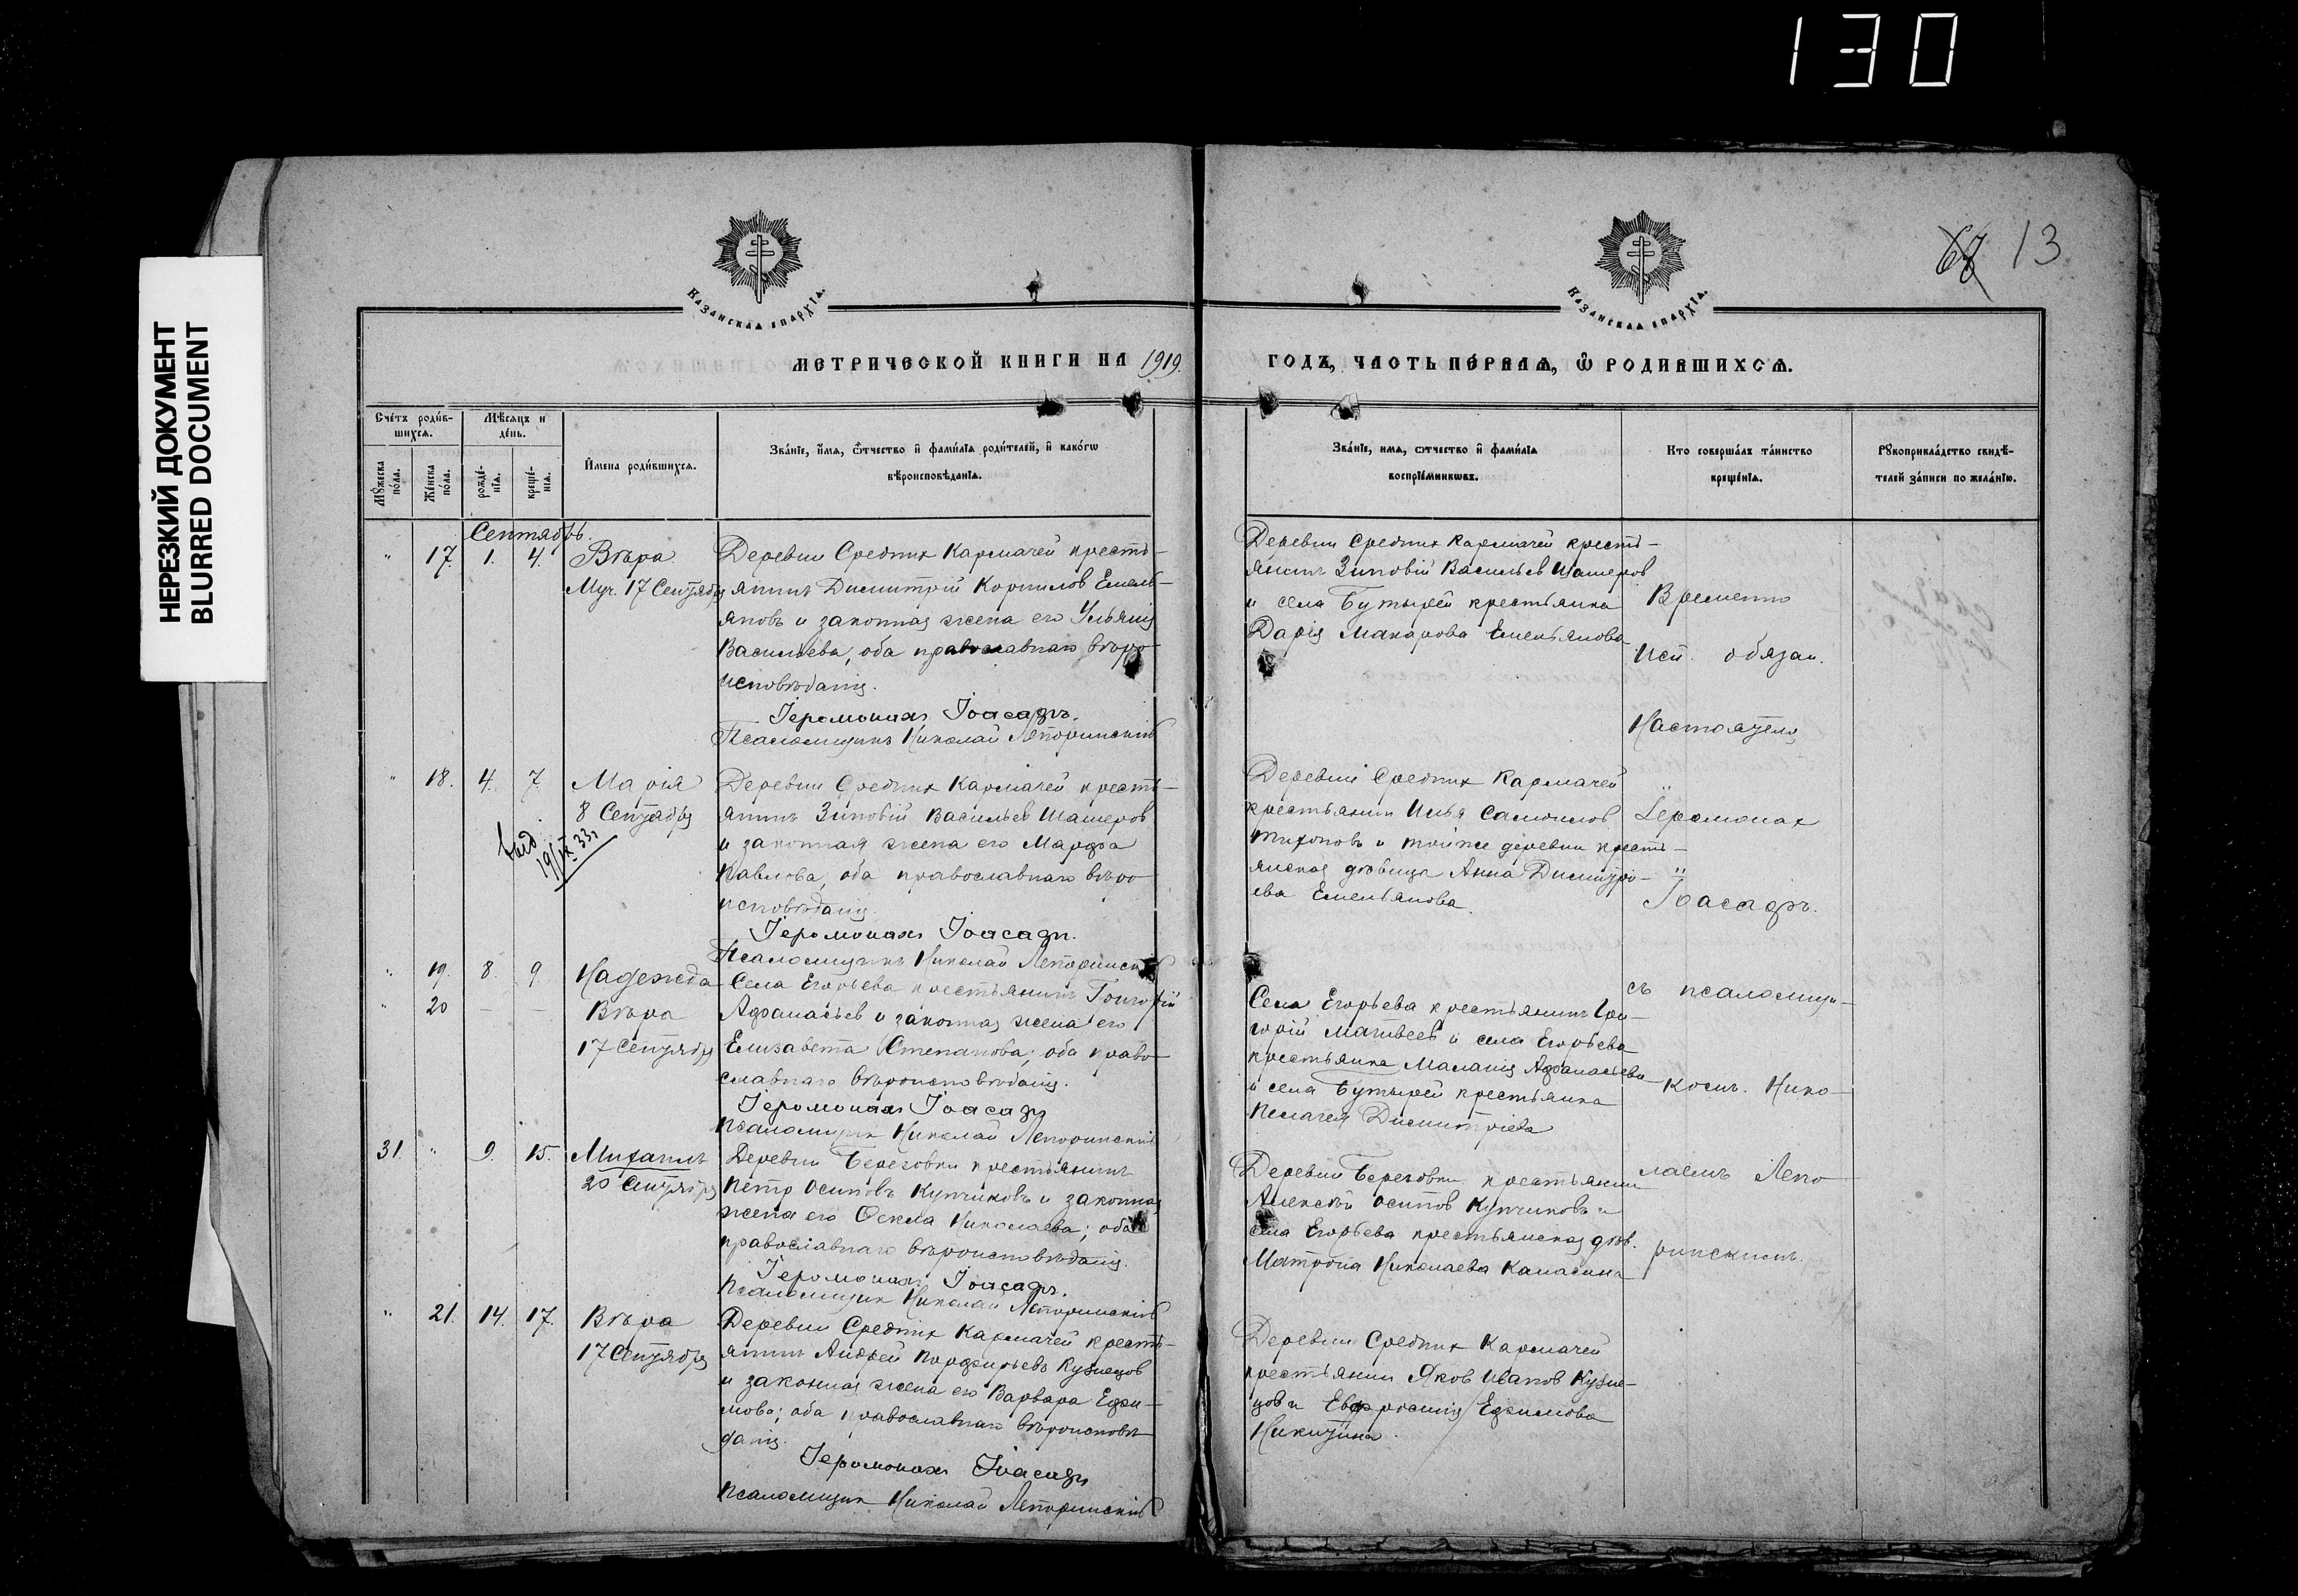 130
НЕРЕЗКИЙ ДОКУМЕНТ
BLURRED DOCUMENT
67 13
КАЗАНСКАѦ ЕПАРХІѦ.
КАЗАНСКАѦ ЕПАРХІѦ.
МЕТРИЧЕСКОЙ КНИГИ НА 1919.
ГОДЪ, ЧАСТЬ ПЕ́РВАѦ, Ѽ РОДИВШИХСѦ.
Сче́тъ роди́в-
шихсѧ.
Мѣ́сѧцъ и
де́нь.
Мꙋ́жеска
по́ла.
Же́нска
по́ла.
рожде́-
нїѧ.
креще́-
нїѧ.
И҆мена роди́вшихсѧ.
Зва́нїе, и҆́мѧ, ѻ҆́тчество и҆ фами́лїѧ роди́телей, и҆ како́гѡ
вѣроисповѣ́данїѧ.
Зва́нїе, имѧ, ѻтчество и҆ фами́лїѧ
воспрїе́мникѡвъ.
Кто соверша́лъ та́инство
креще́нїѧ.
Рꙋкоприкла́дство свидѣ́-
телей за́писи по жела́нїю.
Сентябрь.
" 17. 1. 4. Вѣра
Муч. 17 Сентября
Деревни Средних Кармачей кресть-
янинъ Димитрій Корнилов Емель-
яновъ и законная жена его Ульянія
Васильева, оба православнаго вѣро-
исповѣданія.
Іеромонахъ Іоасафъ.
Псаломщикъ Николай Лепоринскій
Деревни Средних Кармачей кресть-
янинъ Зиновій Васильев Шашеров
и села Бутырей крестьянка
Дарія Макарова Емельянова
Временно
исп. обязан.
Настоятеля
Іеромонах
Іоасафъ.
съ псаломщи-
комъ. Нико-
лаемъ Лепо-
ринскимъ.
" 18. 4. 7. Марія
8 Сентября
19/IX 33г
Деревни Средних Кармачей кресть-
янинъ Зиновій Васильев Шашеров
и законная жена его Марфа
Павлова, оба православнаго вѣро-
исповѣданія.
Іеромонахъ Іоасафъ.
Псаломщикъ Николай Лепоринскій
Деревни Средних Кармачей
крестьянин Илья Самоилов
Тихонов и той же деревни кресть-
янская дѣвица Анна Димитрі-
ева Емельянова.
" 19. 8. 9. Надежда
" 20 — — Вѣра
17 Сентября
Села Егорьева крестьянинъ Григорій
Афанасьев и законная жена его
Елизавета Степанова; оба право-
славнаго вѣроисповѣданія.
Іеромонахъ Іоасафъ
Псаломщик Николай Лепоринскій
Села Егорьева крестьянинъ Гри-
горій Матвеев и села Егорьева
крестьянка Маланія Афанасьева
и села Бутырей крестьянка
Пелагея Димитріева
31. " 9. 15. Михаилъ
20 Сентября
Деревни Березовки крестьянинъ
Петр Осиповъ Купчиковъ и законная
жена его Ѳекла Николаева; оба
православнаго вѣроисповѣданія.
Іеромонахъ Іоасафъ.
Псаломщик Николай Лепоринскій
Деревни Березовки крестьянин
Алексѣй Осипов Купчиковъ и
села Егорьева крестьянская дѣв.
Матрона Николаева
" 21. 14. 17. Вѣра
17 Сентября
Деревни Средних Кармачей кресть-
янинъ Андрей Порфирьевъ Кузнецов
и законная жена его Варвара Ефи-
мова; оба православнаго вѣроисповѣ-
данія.
Іеромонахъ Іоасафъ
Псаломщик Николай Лепоринскій
Деревни Средних Кармачей
крестьянин Яков Иванов Кузне-
цов и Евфросинія Ефимова
Никитина.